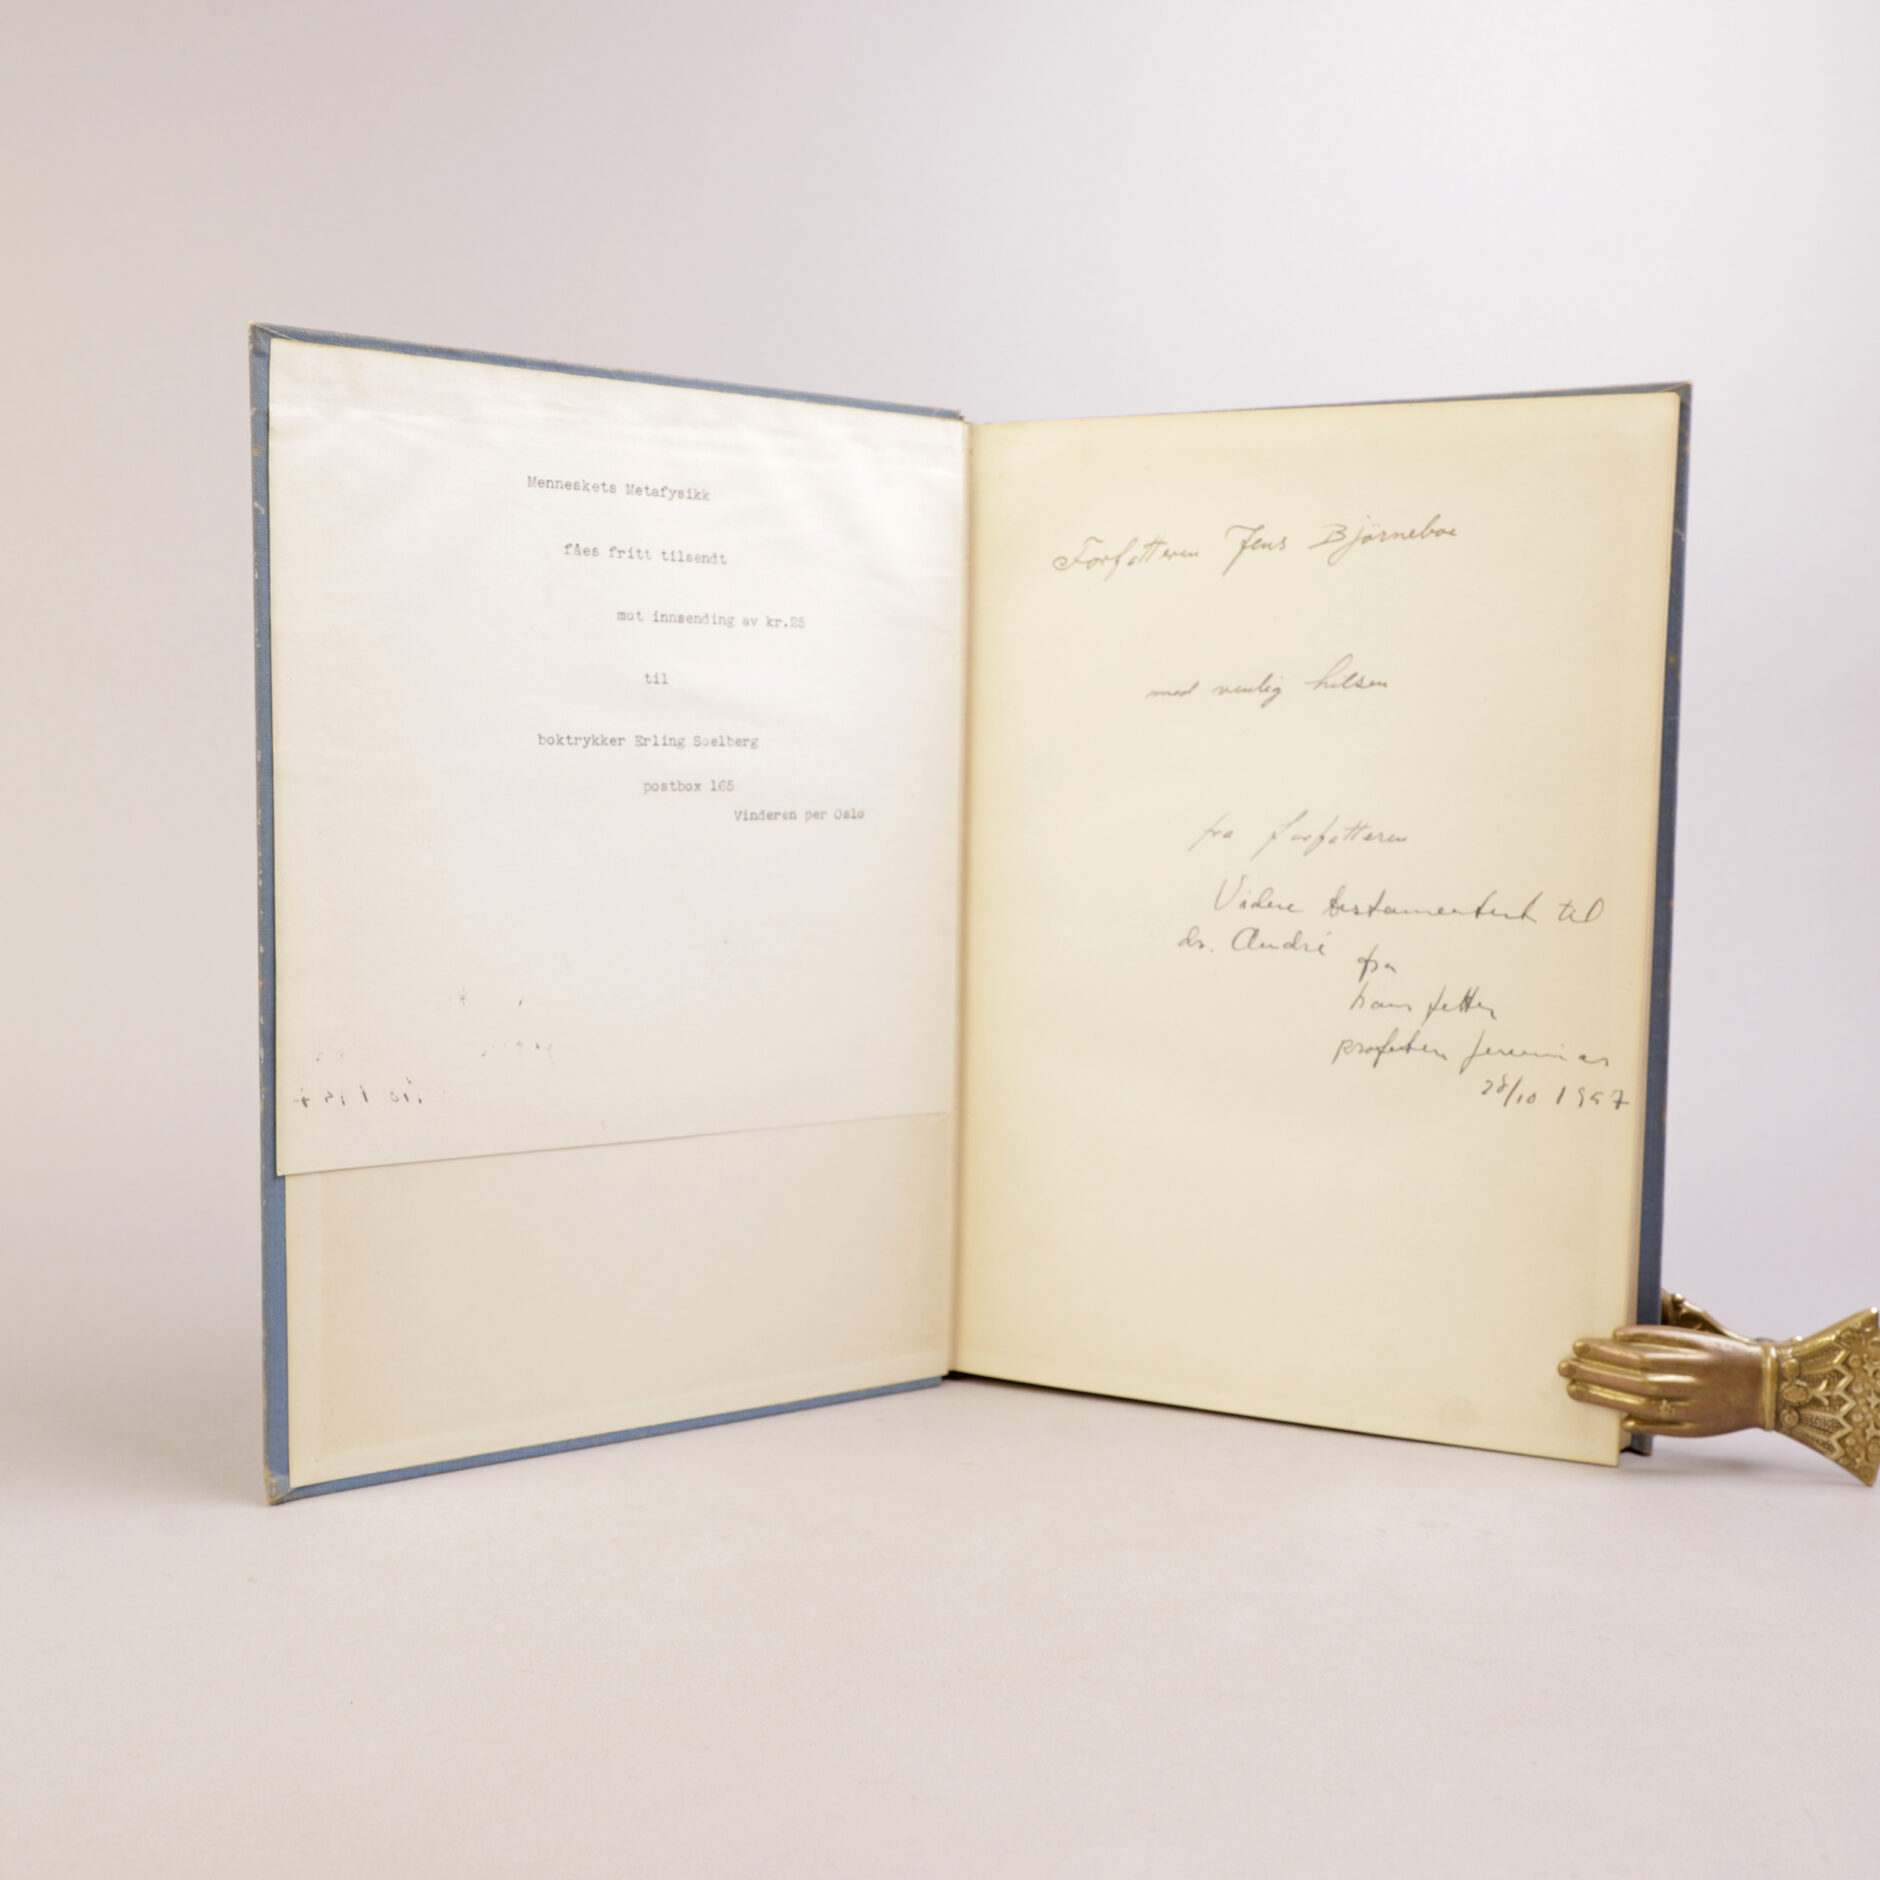 Menneskets Metafysikk
fåes fritt tilsendt
mot innsending av kr.25
til
boktrykker Erling Soelberg
postbox 165
Vinderen per Oslo
Forfatteren Jens Björneboe
med venlig hilsen
fra forfatteren
Videre testamentert til
dr. André
fra
hans fetter
profeten Jeremias
28/10 1957